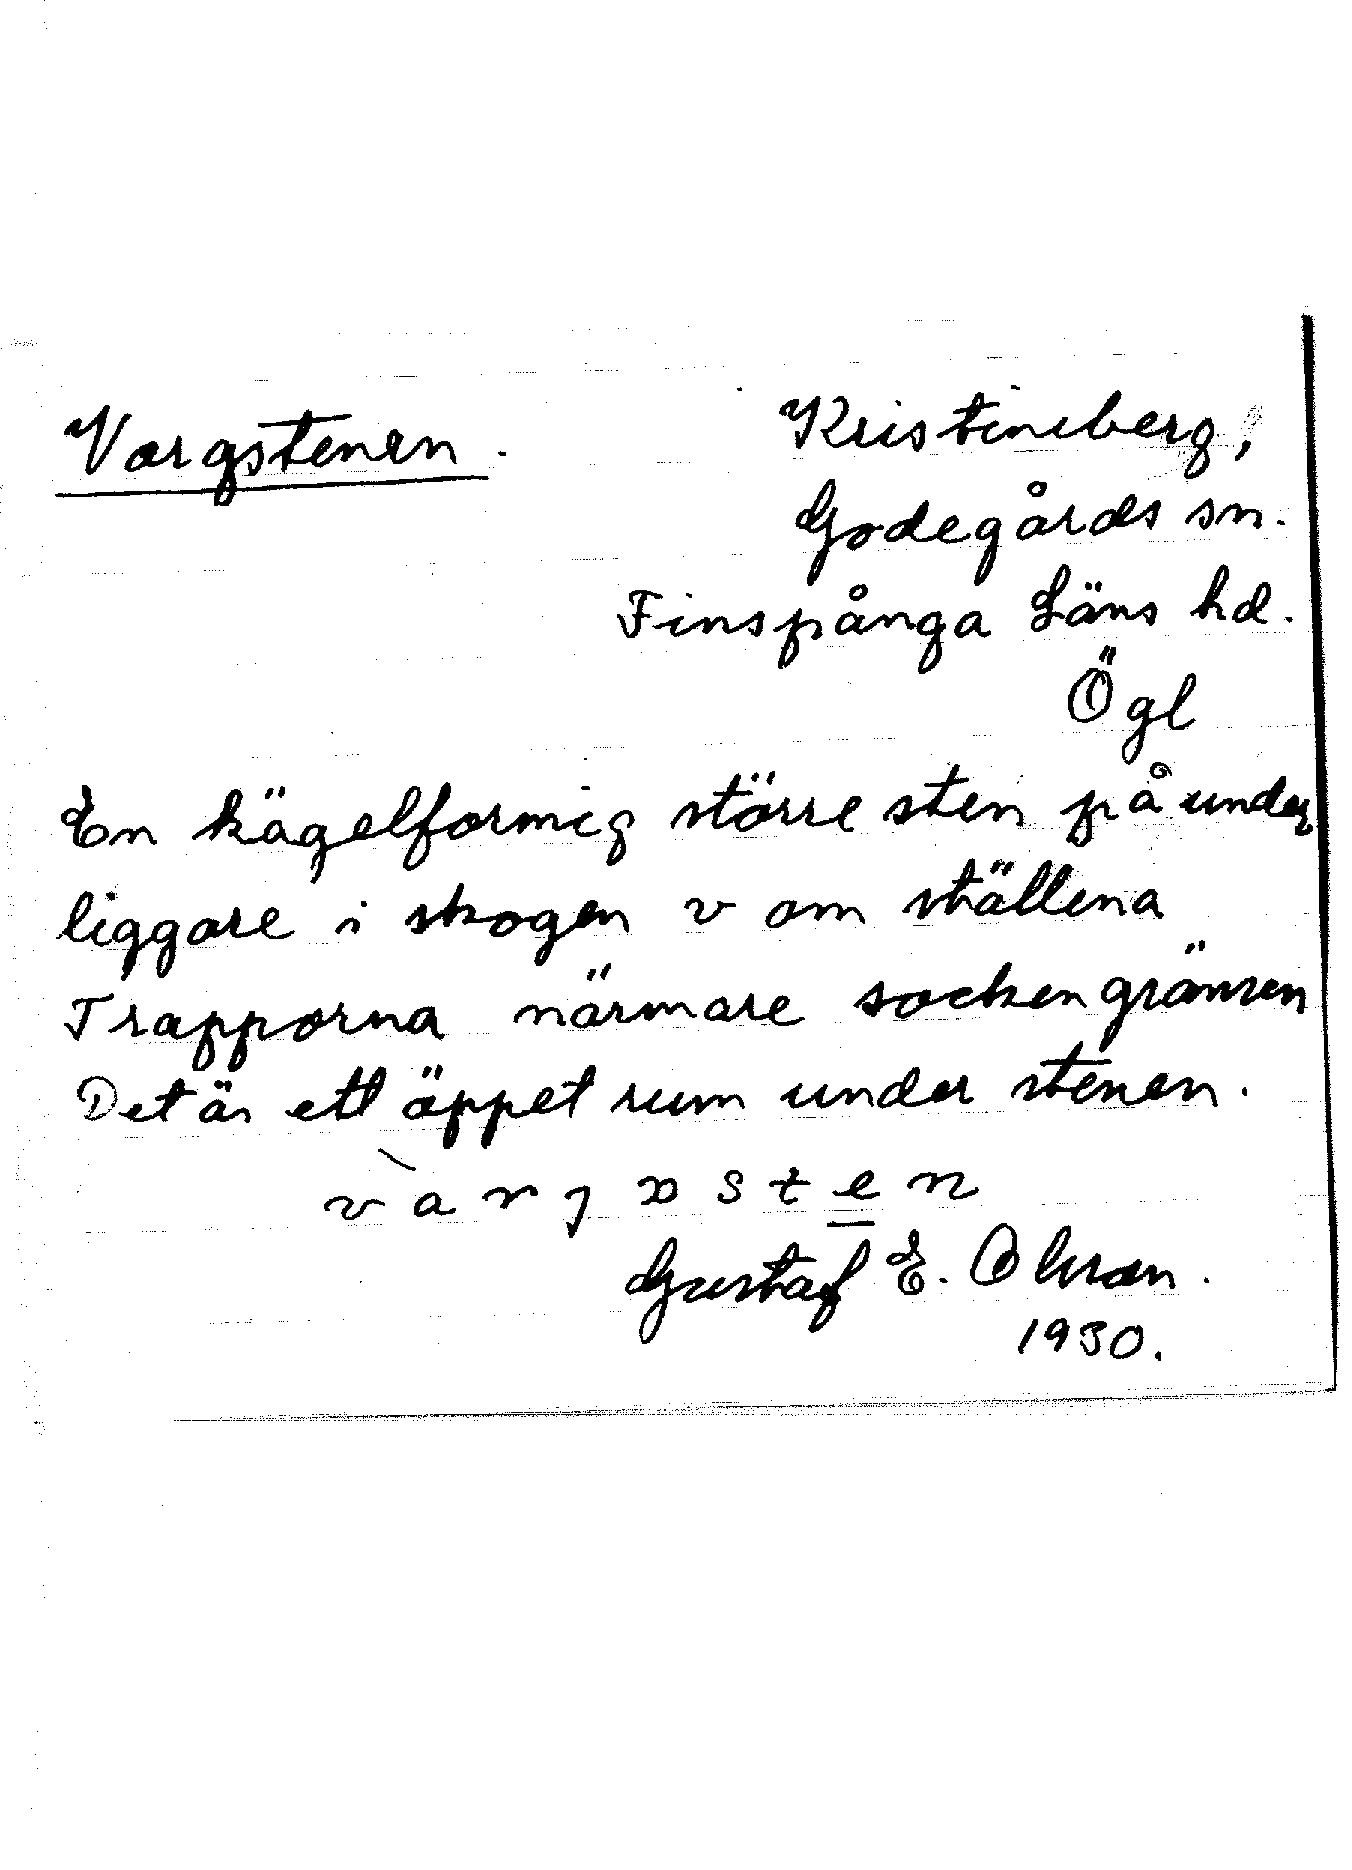 Vargstenen.
Kristineberg,
Godegårds sn.
Finspånga Läns hd.
Ögl
En kägelformig större sten på under
liggare i skogen v om ställena
Trapporna närmare sockengränsen
Det är ett öppet rum under stenen.
v à r j x s t e n
Gustaf E. Olsson.
1930.